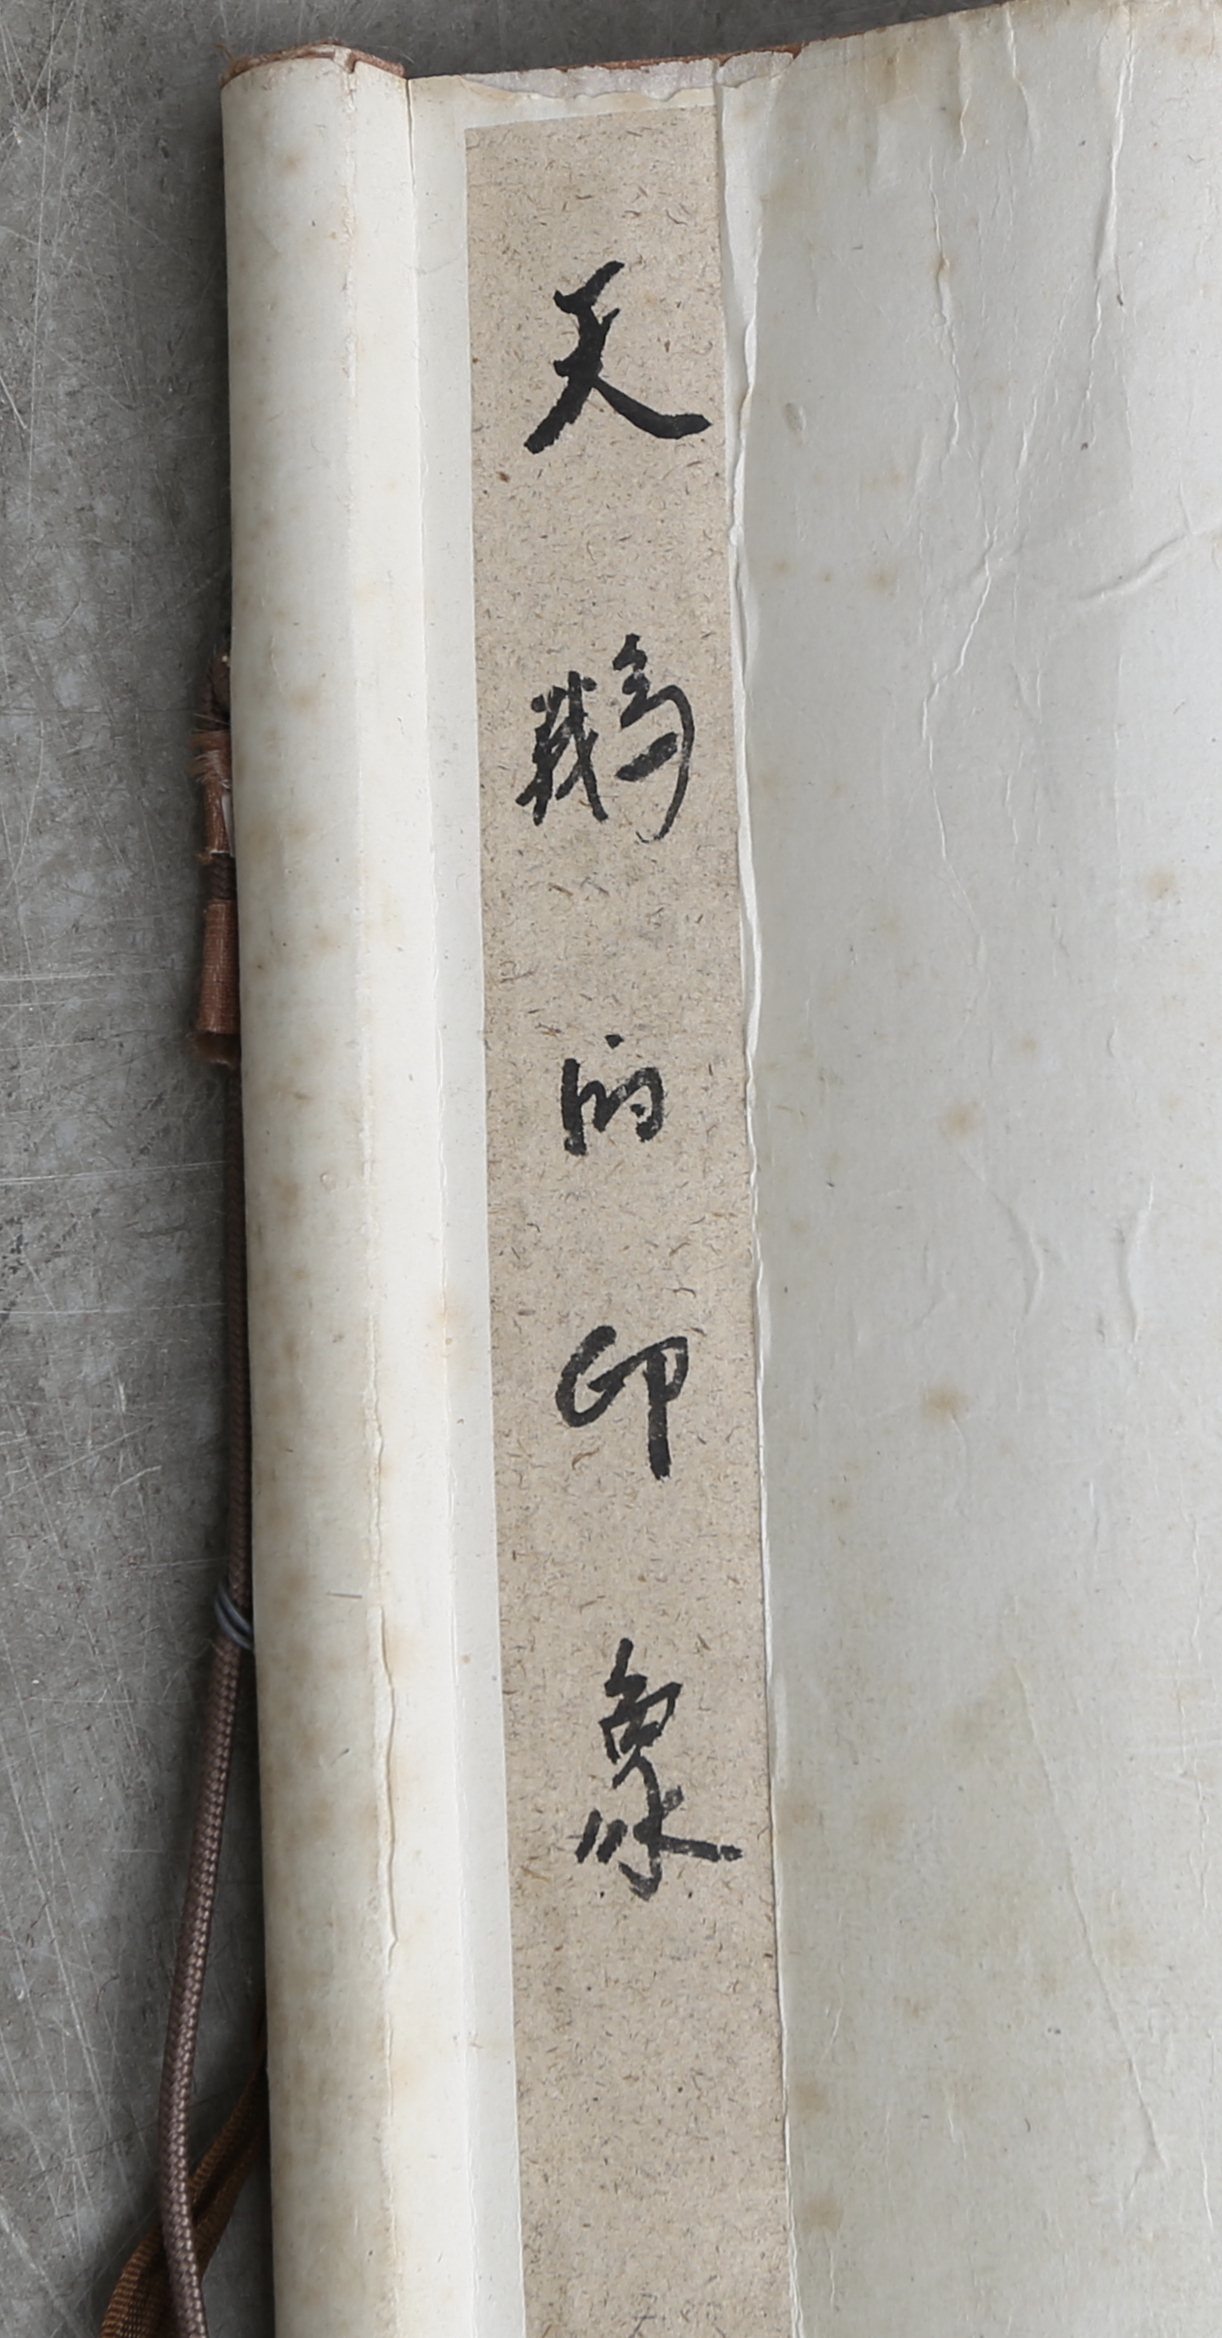 天鵝的印象